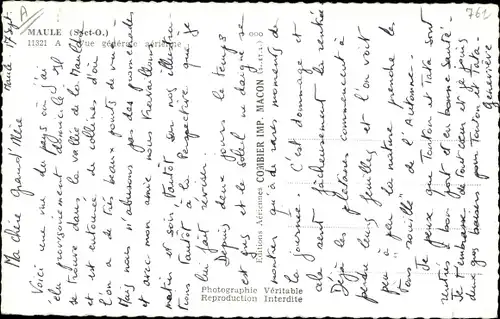 MAULE (S.-et-O.)
11321 A Vue générale aérienne
762
Maule 17 sept.
Ma chère Grand'Mère
Voici une vue du pays où j'ai
élu provisoirement domicile. Il
se trouve dans la vallée de la Mauldre
et est entouré de collines d'où
l'on a de très beaux points de vue
Mais nous n'abusons pas des promenades
et avec mon amie nous travaillons
matin et soir. Tantôt on nous
tions Tantôt à la Perspective que je
lui fait réviser.
Depuis deux jours le temps
est gris et le soleil ne daigne se
montrer qu'à de rares moments de
la journée. C'est dommage et
cela sent fâcheusement la rentrée
Déjà les platanes commencent à
perdre leurs feuilles et l'on voit
peu à peu la nature prendre les
tons "rouille" de l'Automne.
Je pense que Tonton et Tata sont
rentrés à bon port et en bonne santé
Je t'embrasse de tout cœur et je joins
deux gros baisers pour Tonton et Tata.
Geneviève
Editions Aériennes COMBIER IMP. MACON
Photographie Véritable
Reproduction Interdite